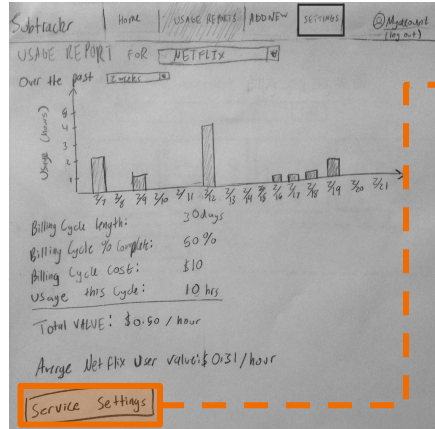 Subtrackr
Home
USAGE REPORTS
ADD NEW
SETTINGS
@MyAccount
(log out)
USAGE REPORT FOR NETFLIX
Over the past 2 weeks
Usage (hours)
4
3
2
1
2/7 2/8 2/9 2/10 2/11 2/12 2/13 2/14 2/15 2/16 2/17 2/18 2/19 2/20 2/21
Billing Cycle length: 30 days
Billing Cycle % Complete: 50%
Billing Cycle Cost: $10
Usage this Cycle: 10 hrs
Total VALUE: $0.50 / hour
Averge Netflix User value: $0.31 / hour
Service Settings